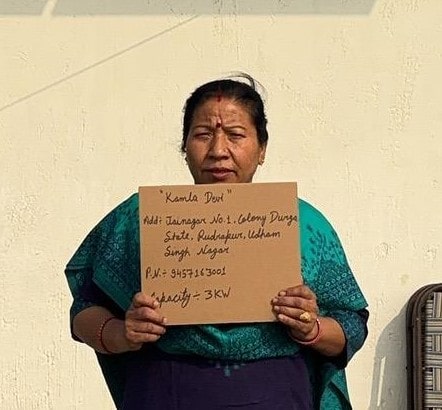 "Kamla Devi"
Add:- Jainagar No.1, Colony Durga
State, Rudrapur, Udham
Singh Nagar
P.N.:- 9457163001
Capacity :- 3KW